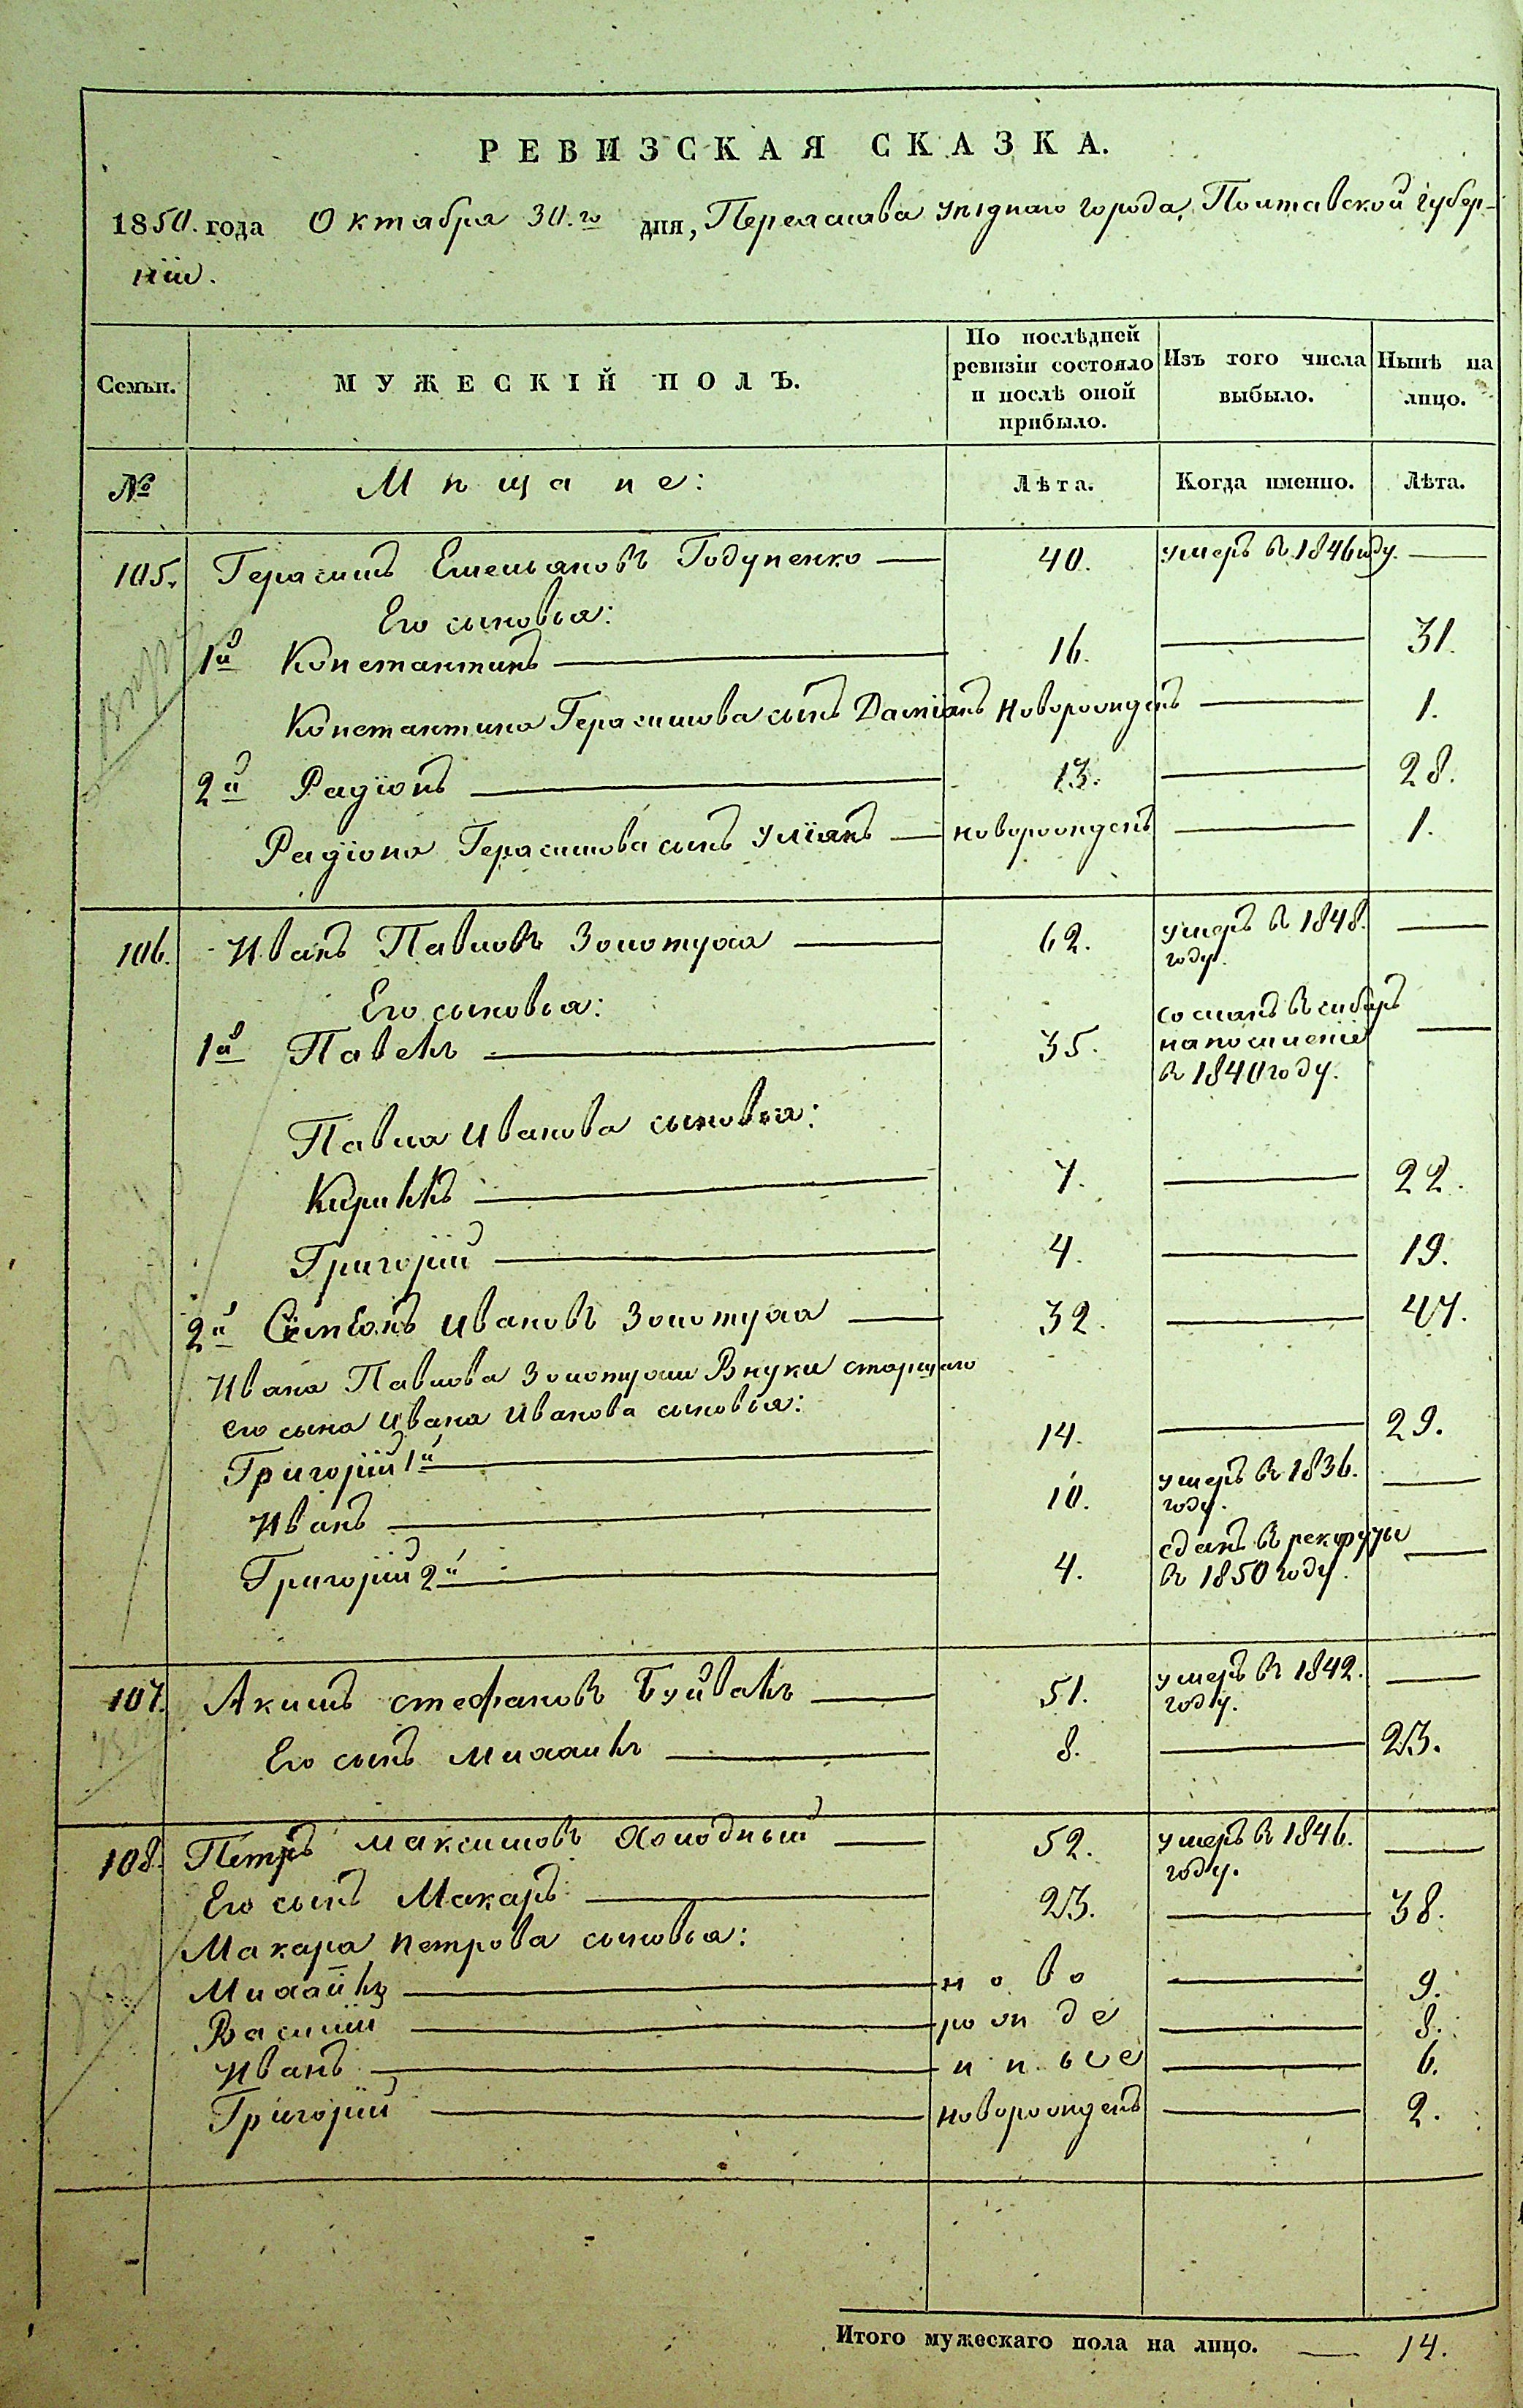 РЕВИЗСКАЯ СКАЗКА.
1850. года Октября 30.го дня, Переяслава уѣзднаго города, Полтавской губер-
нiи.
Семьи.
МУЖЕСКІЙ ПОЛЪ.
По послѣдней
ревизіи состояло
и послѣ оной
прибыло.
Изъ того числа
выбыло.
Нынѣ на
лицо.
№
Мѣщане:
Лѣта.
Когда именно.
Лѣта.
105. Герасимъ Емельяновъ Годуненко — 40. умеръ въ 1846 году. —
Его сыновья:
1й Константинъ — 16. — 31.
Константина Герасимова сынъ Даміанъ новорожденъ — 1.
2й Радіонъ — 13. — 28.
Радіона Герасимова сынъ Уліянъ — новорожденъ — 1.
106. Иванъ Павловъ Золотуха — 62. умеръ въ 1848.
году. —
Его сыновья:
1й Павелъ — 35. сосланъ въ сибирь
на поселеніе
въ 1840 году. —
Павла Иванова сыновья:
Кирилъ — 7. — 22.
Григорій — 4. — 19.
2й Симеонъ Ивановъ Золотуха — 32. — 47.
Ивана Павлова Золотухи Внуки старшаго
его сына Ивана Иванова сыновья:
Григорій 1й — 14. — 29.
Иванъ — 10. умеръ въ 1836.
году. —
Григорій 2й — 4. сданъ въ рекруты
въ 1850 году. —
107. Акимъ Стефановъ Буйвалъ — 51. умеръ въ 1842.
году. —
Его сынъ Михаилъ — 8. — 23.
108. Петръ Максимовъ Холодный — 52. умеръ въ 1846.
году. —
Его сынъ Макаръ — 23. — 38.
Макара Петрова сыновья:
Михаилъ — ново — 9.
Василій — рожде — 8.
Иванъ — нные — 6.
Григорій — новорожденъ — 2.
Итого мужескаго пола на лицо. — 14.